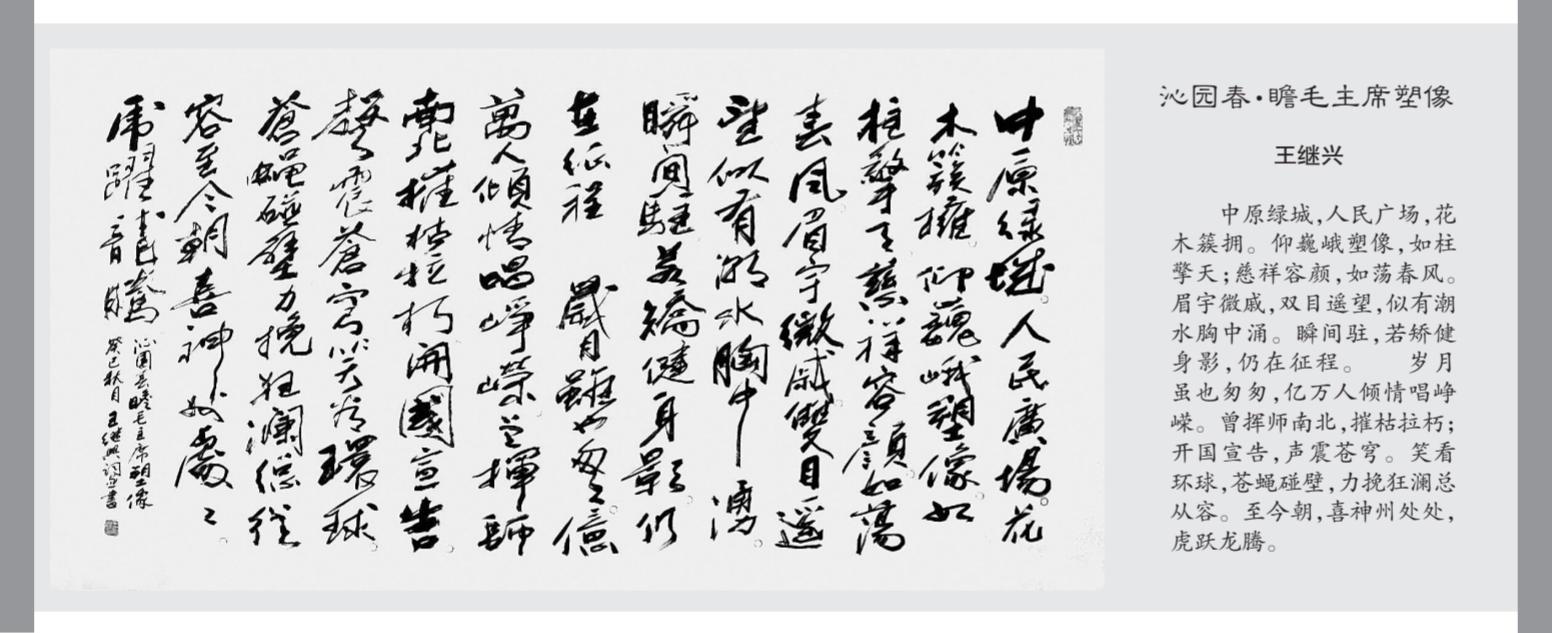 中原绿城人民廣場花
木簇擁仰巍峨塑像如
柱擎天慈祥容顔如蕩
春風眉宇微戚雙目遥
望似有潮水胸中湧
瞬间駐若矯健身影仍
在征程 歲月雖也匆匆億
萬人傾情唱峥嵘曾揮師
南北摧枯拉朽開國宣告
聲震蒼穹笑看環球
蒼蝇碰壁力挽狂澜總從
容至今朝喜神州處處
虎躍龍騰
沁園春瞻毛主席塑像
癸巳秋月王继興詞並書
沁园春·瞻毛主席塑像
王继兴
中原绿城,人民广场,花
木簇拥。仰巍峨塑像,如柱
擎天;慈祥容颜,如荡春风。
眉宇微戚,双目遥望,似有潮
水胸中涌。瞬间驻,若矫健
身影,仍在征程。 岁月
虽也匆匆,亿万人倾情唱峥
嵘。曾挥师南北,摧枯拉朽;
开国宣告,声震苍穹。笑看
环球,苍蝇碰壁,力挽狂澜总
从容。至今朝,喜神州处处,
虎跃龙腾。